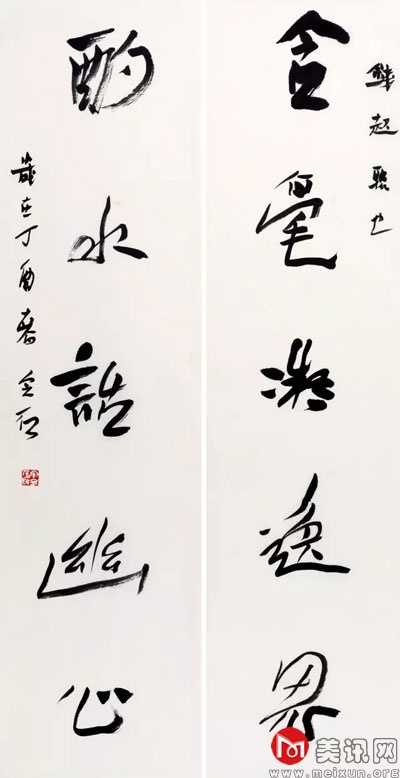 含毫凝逸思
酌水話幽心
歲在丁酉春
美讯网
www.meixun.org